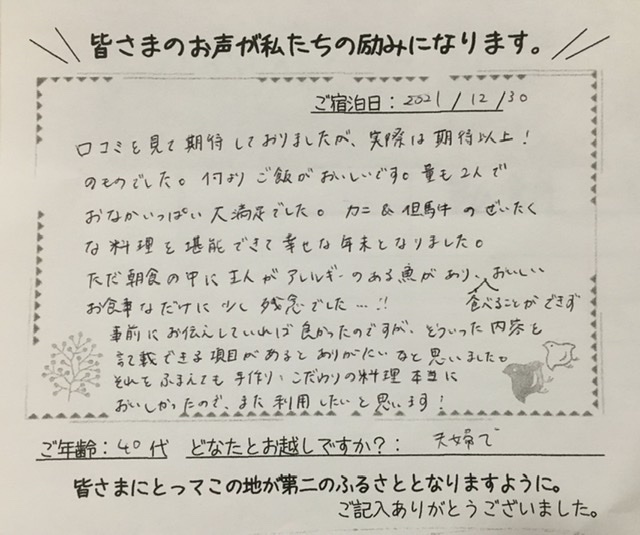 皆さまのお声が私たちの励みになります。
ご宿泊日：2021/12/30
口コミを見て期待しておりましたが、実際は期待以上！
のものでした。何よりご飯がおいしいです。量も2人で
おなかいっぱい大満足でした。カニ&但馬牛のぜいたく
な料理を堪能できて幸せな年末となりました。
ただ朝食の中に主人がアレルギーのある魚があり、おいしい
お食事なだけに少し残念でした…!! 食べることができず
事前にお伝えしていれば良かったのですが、どういった内容を
記載できる項目があるとありがたいなと思いました。
それをふまえても手作り・こだわりの料理本当に
おいしかったので、また利用したいと思います！
ご年齢：40代 どなたとお越しですか？： 夫婦で
皆さまにとってこの地が第二のふるさととなりますように。
ご記入ありがとうございました。